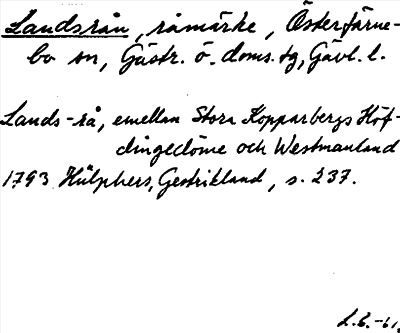 Landsrån, råmärke, Österfärne-
bo sn, Gästr. ö. doms. tg, Gävl. l.
Lands-rå, emellan Stora Kopparbergs Höf-
dingedöme och Westmanland
1793 Hülphers, Gestrikland, s. 237.
L.E.-61.